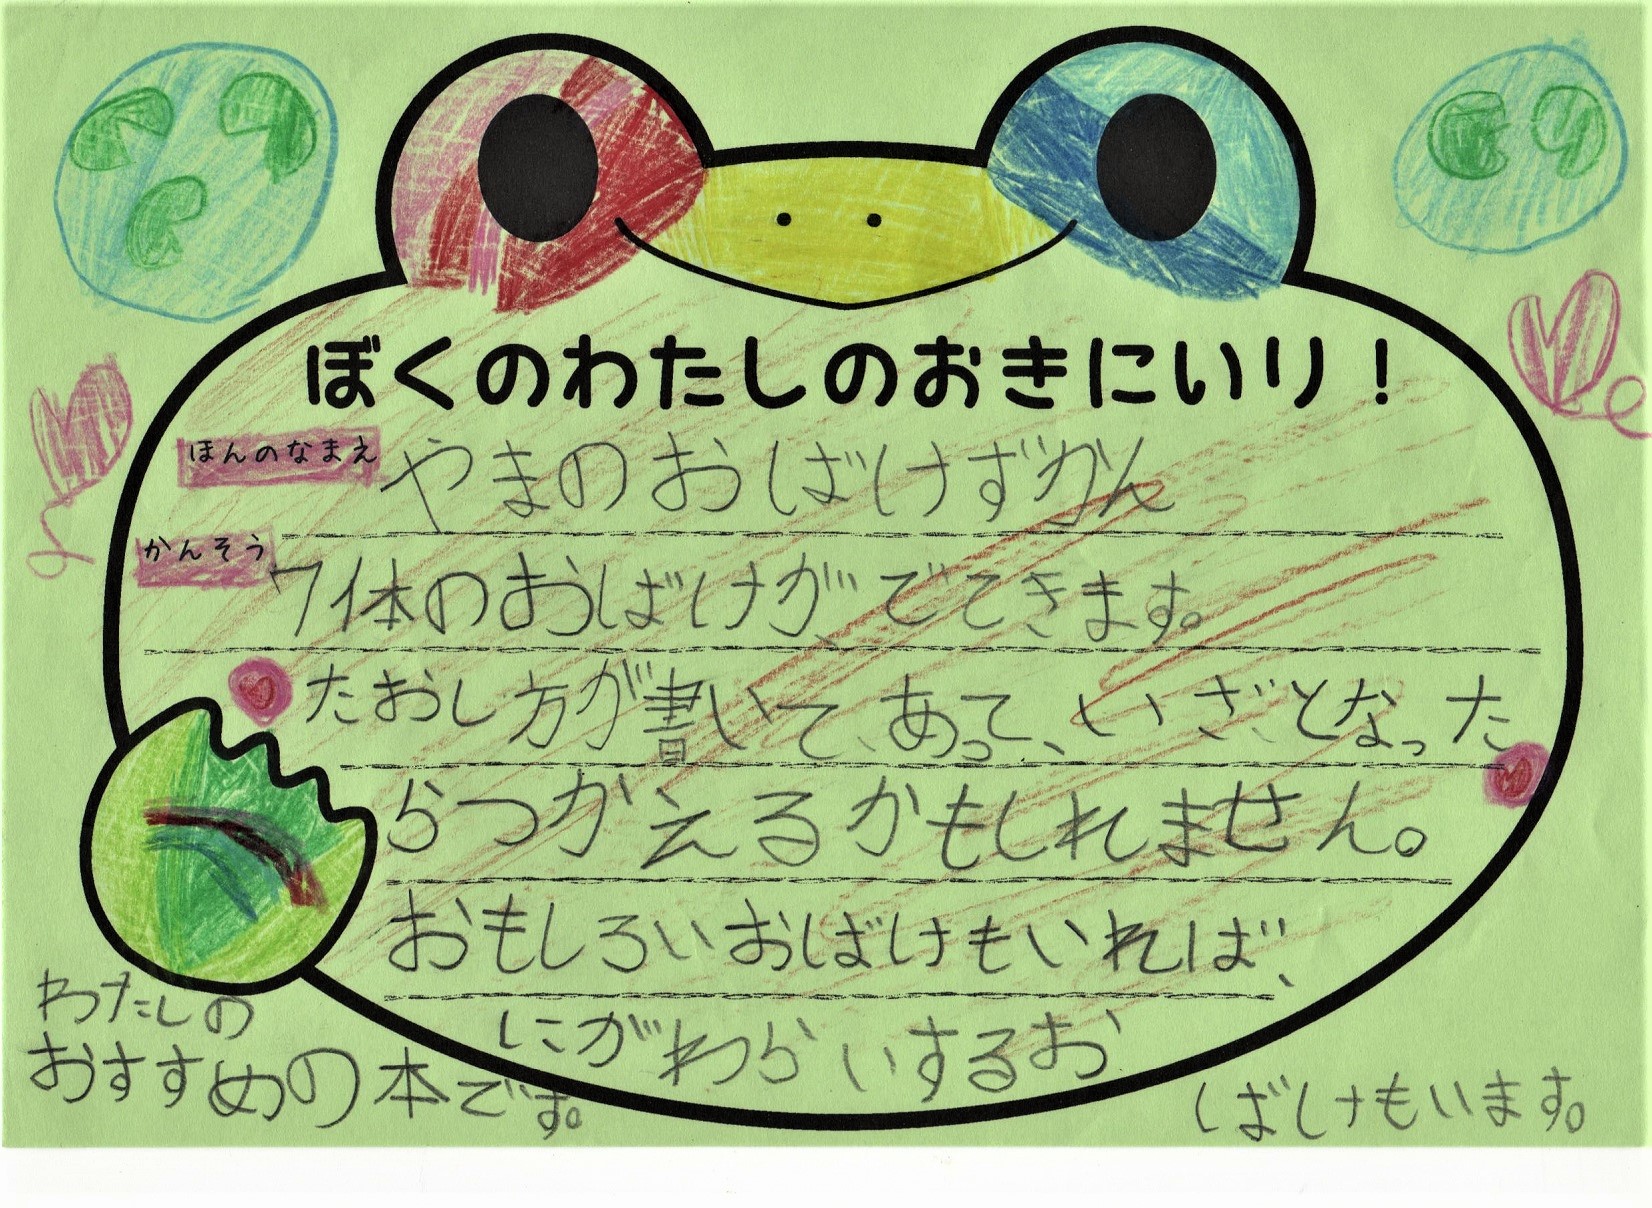 ぼくのわたしのおきにいり！
ほんのなまえ やまのおばけずかん
かんそう 7体のおばけが、でてきます。
たおし方が書いて、あって、いざとなった
らつかえるかもしれません。
おもしろいおばけもいれば、
にがわらいするお
ばけもいます。
わたしの
おすすめの本です。